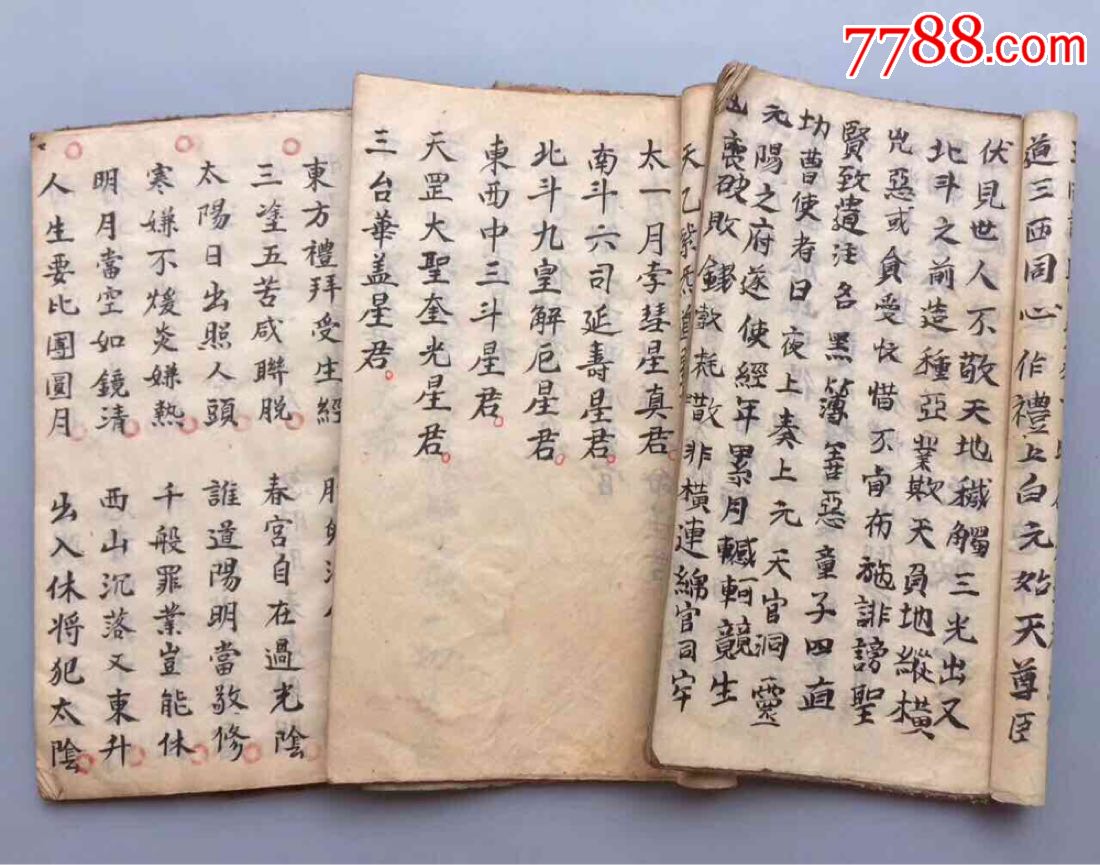 7788.com
道三西同心作禮上白元始天尊臣
伏見世人不敬天地穢觸三光出又
北斗之前造種亞業欺天負地縱橫
兇惡或貪受忟惜不甯布施誹謗聖
賢致遺注各黑簿善惡童子四直
功曹使者日夜上奏上元天官洞靈
元陽之府遂使經年累月轗軻競生
喪破敗錢數耗散非橫連綿官司牢
天乙紫炁
太一月孛彗星真君
南斗六司延壽星君
北斗九皇解厄星君
東西中三斗星君
天罡大聖奎光星君
三台華盖星君
東方禮拜受生經
三塗五苦咸聯脫 春宮自在過光陰
太陽日出照人頭 誰道陽明當敬修
寒嫌不煖炎嫌熱 千般罪業豈能休
明月當空如鏡清 西山沉落又東升
人生要比團圓月 出入休將犯太陰